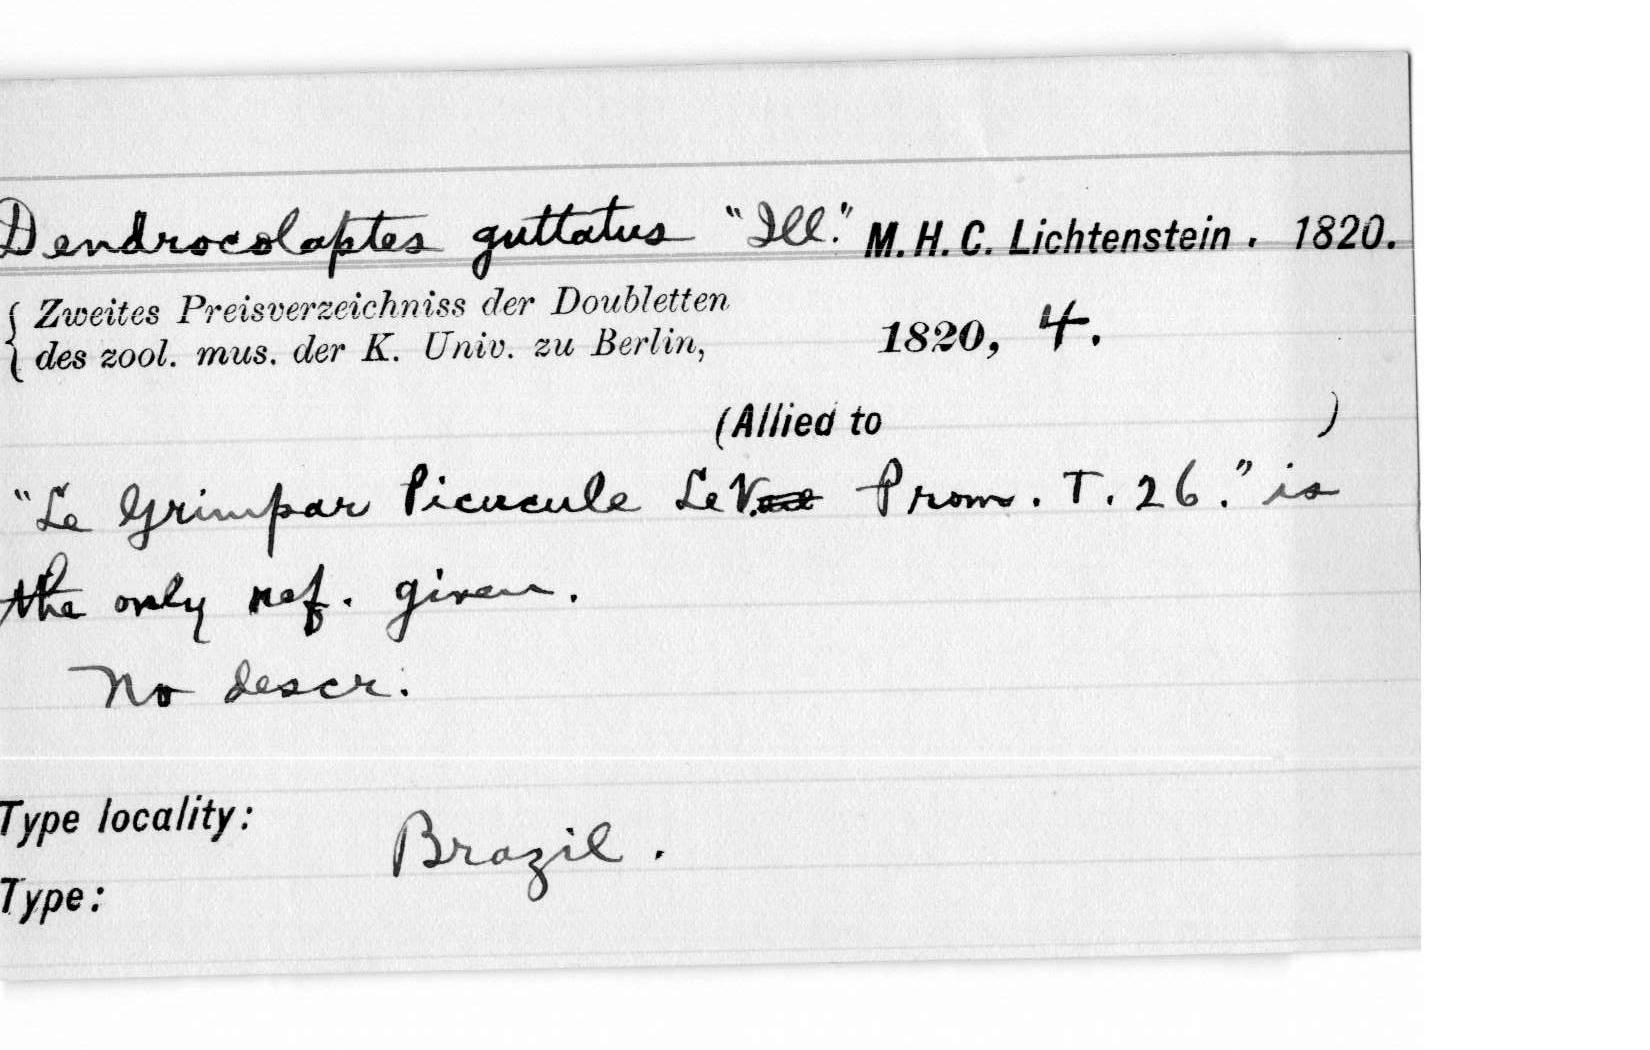 Dendrocolaptes guttatus "Ill." M. H. C. Lichtenstein. 1820.
{ Zweites Preisverzeichniss der Doubletten
des zool. mus. der K. Univ. zu Berlin, 1820, 4.
(Allied to )
"Le Grimpar Picucule Le V. Prom. T. 26." is
the only ref. given.
No descr.
Type locality: Brazil.
Type: